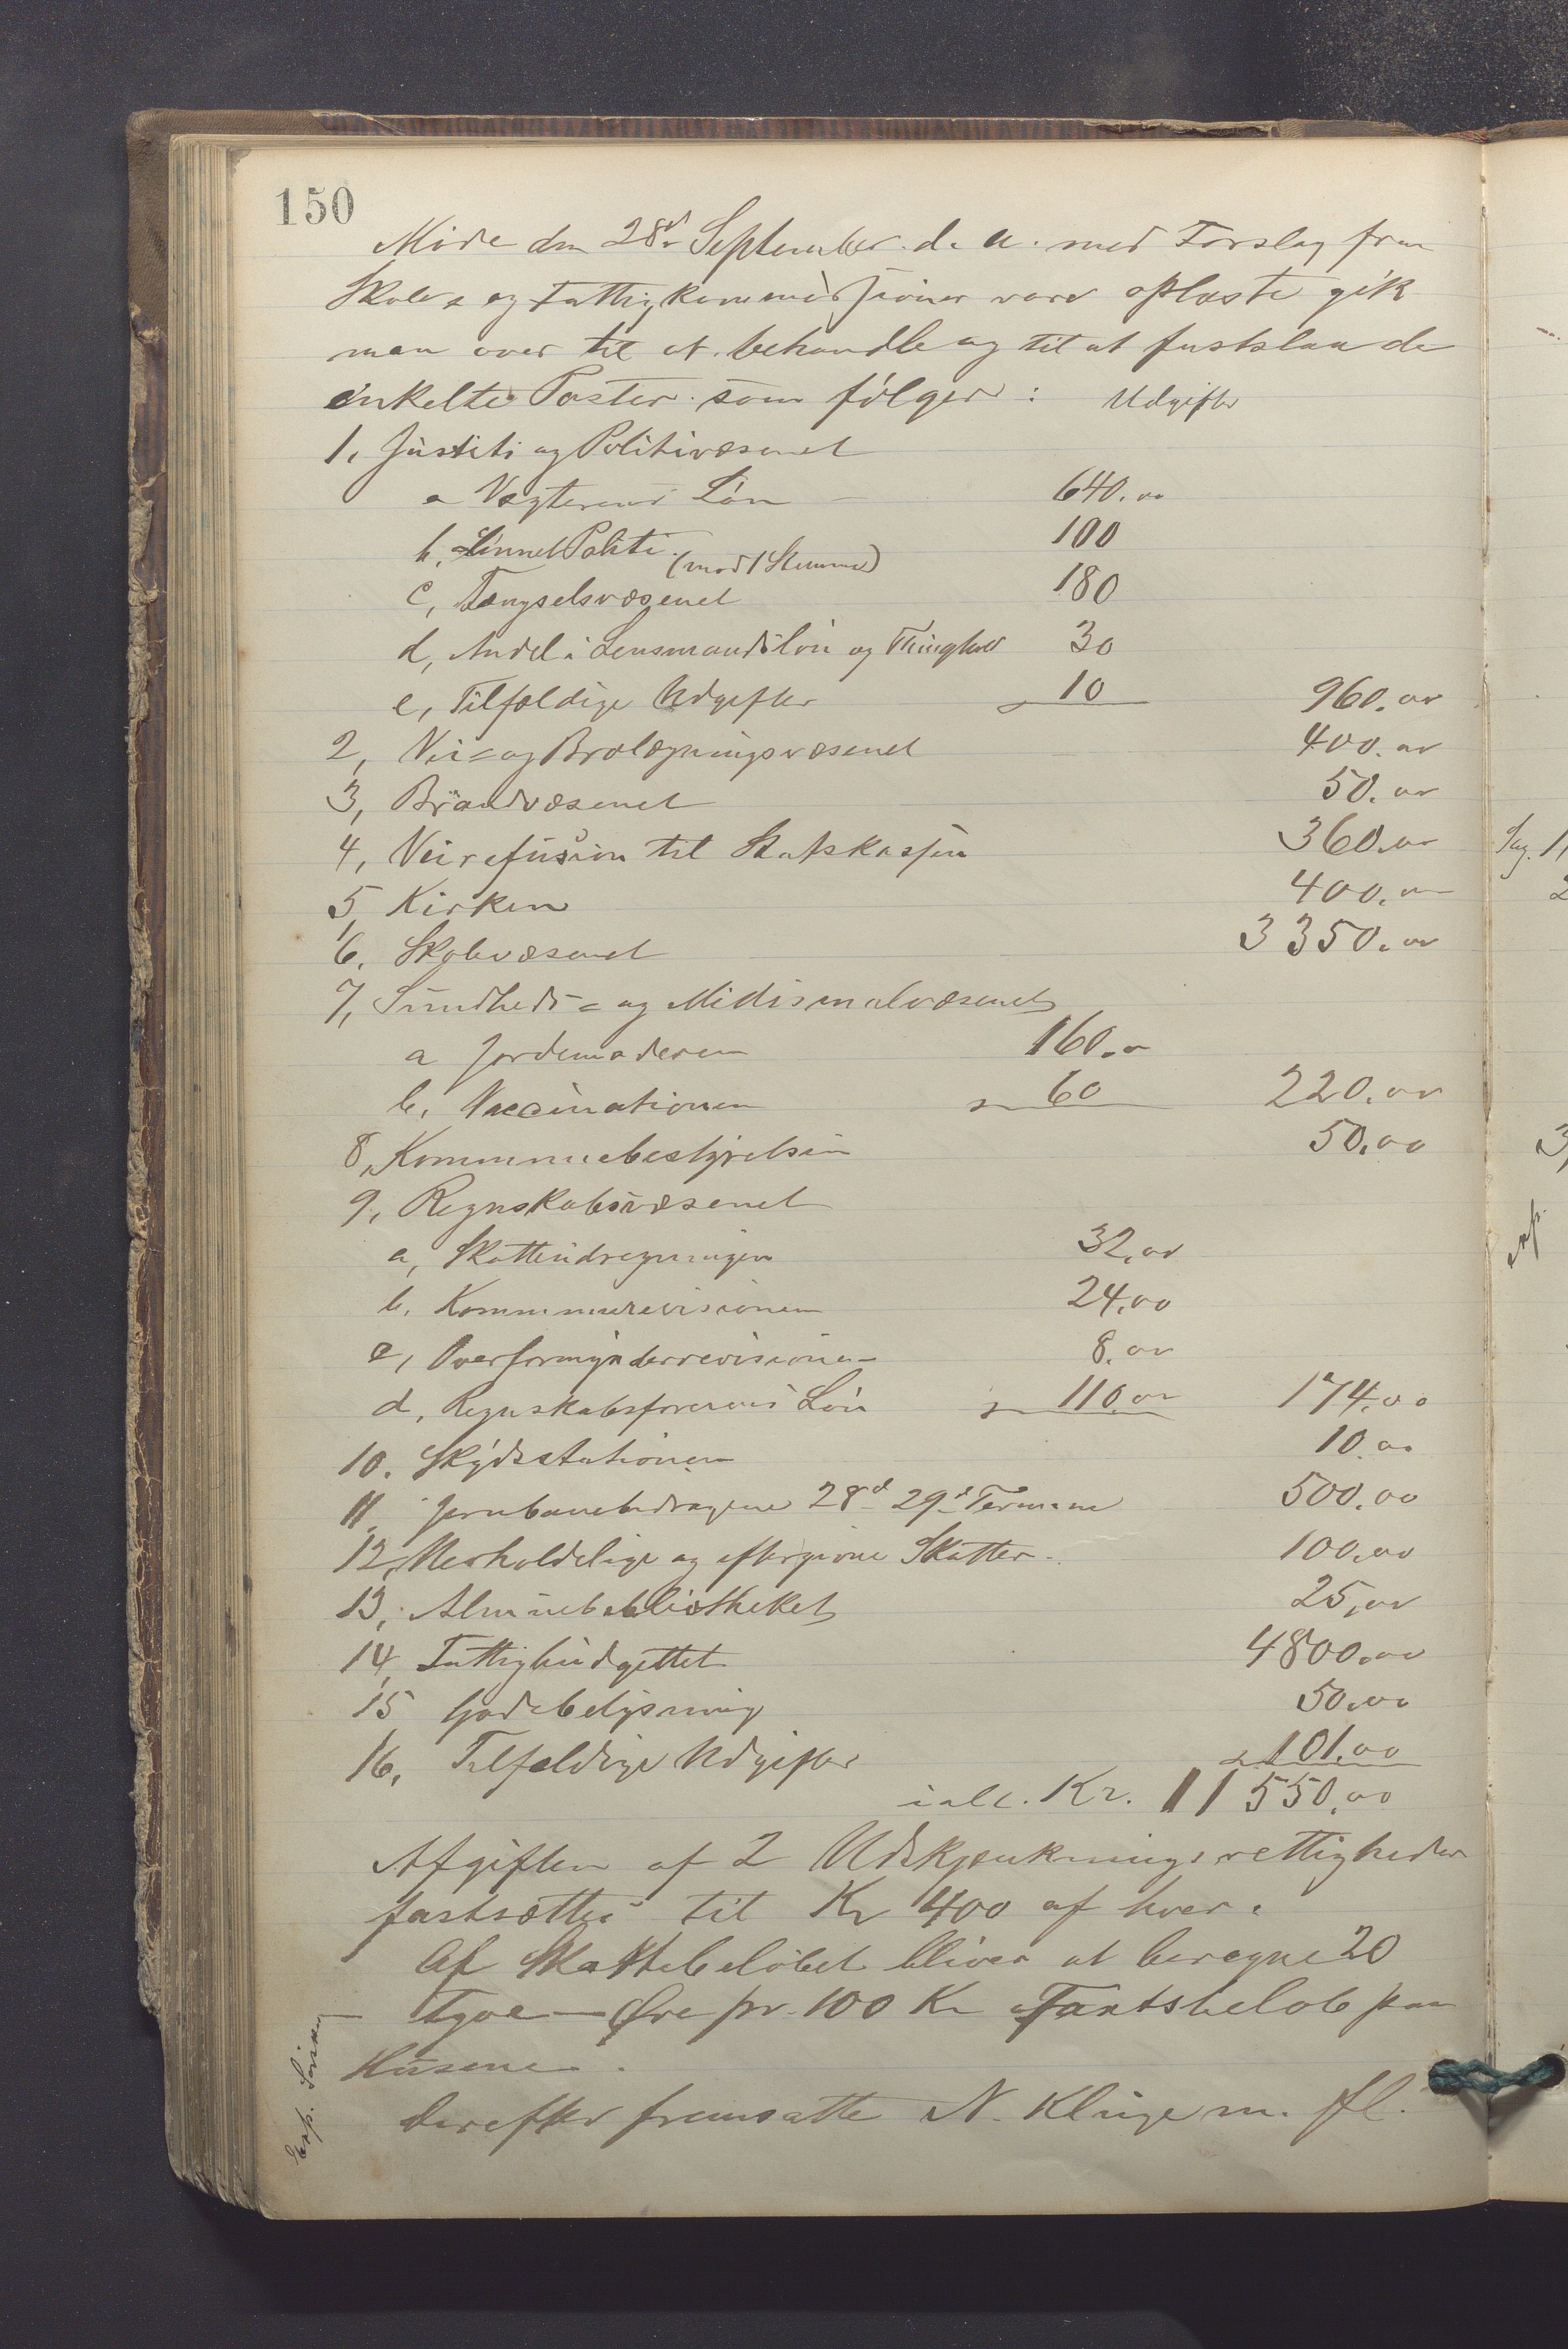 150
Møde den 28d September d. a. med Forslag fra
Skole= og Fattigkommissioner vare oplæste gik
man over til at behandle og til at fastslaa de
enkelte Poster som følger: Udgifter
1, Justits og Politivæsenet
a Vægterens Løn 640.00
b, Politi (mod 1 Stemme) 100
c, Fængselsvæsenet 180
d, Andel i Lensmandsløn og Thinghold 30
e, Tilfældige Udgifter 10 960.00
2, Vei= og Brolægningsvæsenet 400.00
3, Brandvæsenet 50.00
4, Veirefusion til Statskassen 360.00
5, Kirken 400.00
6, Skolevæsenet 3350.00
7, Sundheds= og Medisinalvæsenet
a Jordemoderen 160.00
b, Vaccinationen 60 220.00
8, Kommunebestyrelsen 50.00
9, Regnskabsvæsenet
a, Skatteindregningen 32.00
b. Kommunerevisionen 24.00
c, Overformynderrevisionen 8.00
d, Regnskabsførerens Løn 110.00 174.00
10. Skydsstationen 10.00
11, Jernbanebidragene 28d 29d Termine 500.00
12, Uerholdelige og eftergivne Skatter 100.00
13, Almuebibliotheket 25.00
14, Fattigbudgettet 4800.00
15 Gadebelysning 50.00
16, Tilfældige Udgifter 101.00
ialt. Kr. 11550.00
Afgiften af 2 Udskjænkningsrettigheder
fastsættes til Kr 400 af hver.
Af Skattebeløbet bliver at beregne 20
tyve Øre pr. 100 Kr Taxtsbeløb paa
Husene.
Derefter fremsatte N. Klinge m. fl.
Exp.
Sag. 1,
2
3,
exp.